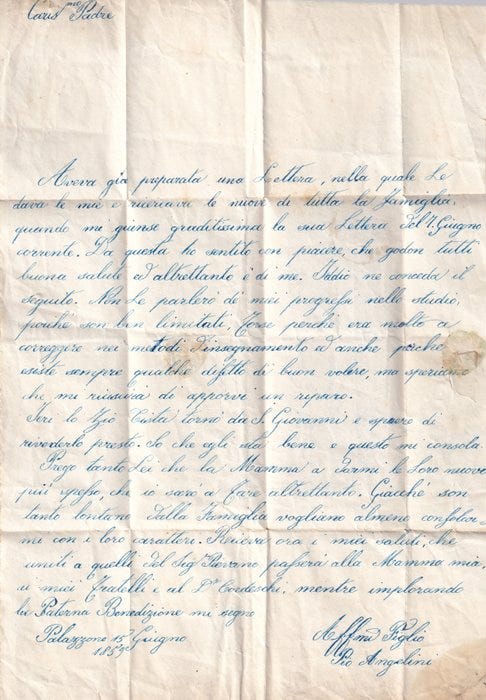 Caris.mo Padre
Aveva già preparata una Lettera, nella quale Le
dava le mie e ricercava le nuove di tutta la Famiglia,
quando mi giunse graditissima la sua Lettera del 1. Giugno
corrente. Da questa ho sentito con piacere, che godon tutti
buona salute ed altrettanto è di me. Iddio ne conceda il
seguito. Non Le parlerò de' miei progressi nello studio,
poiché son ben limitati, forse perché era molto a
correggere nei metodi d'insegnamento ed anche perché
esiste sempre qualche difetto di buon volere, ma speriamo
che mi riuscirà di apporvi un riparo.
Ieri lo Zio tornò da S. Giovanni e spero di
rivederlo presto. So che egli sta bene e questo mi consola.
Prego tanto Lei che la Mamma a darmi le Loro nuove
più spesso, che io sarò a fare altrettanto. Giacché son
tanto lontano dalla Famiglia vogliano almeno consolar-
mi con i loro caratteri. Riceva ora i miei saluti, che
uniti a quelli del Sigr Pievano passerà alla Mamma mia,
ai miei Fratelli e al Dr, mentre implorando
la Paterna Benedizione mi segno
Palazzone 15 Giugno
1859
Affmo Figlio
Pio Angelini